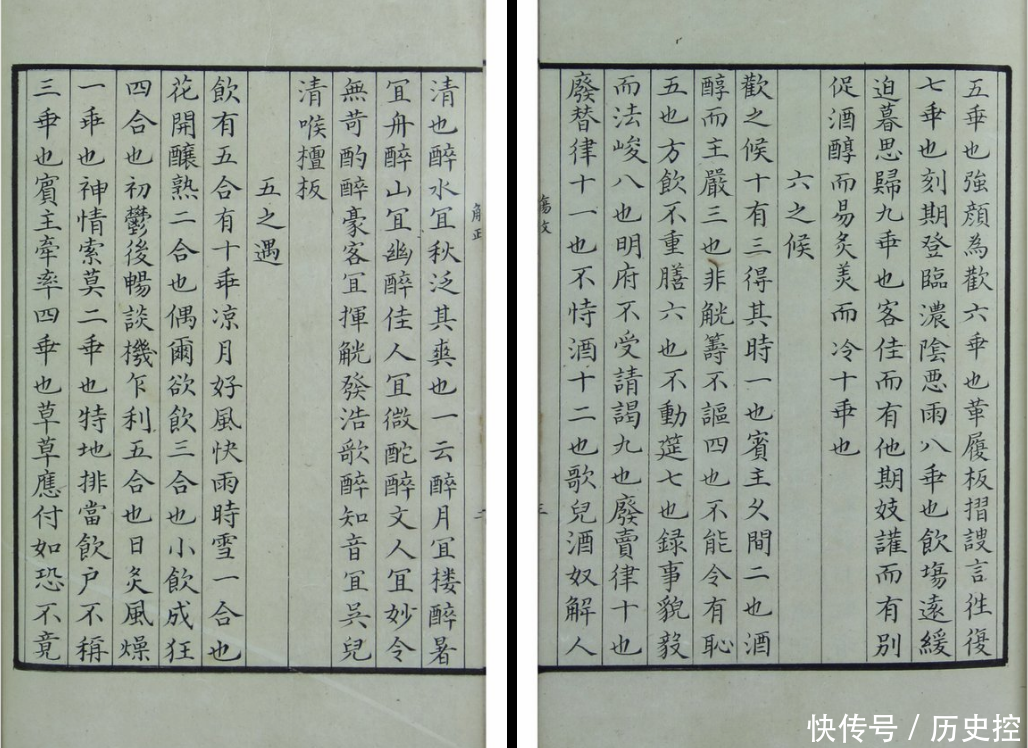 清也醉水冝秋泛其爽也一云醉月冝楼醉暑
冝舟醉山冝幽醉佳人冝微酡醉文人冝妙令
無苛酌醉豪客冝揮觥發浩歌醉知音冝吳兒
清喉檀板
五之遇
飲有五合有十乖凉月好風快雨時雪一合也
花開釀熟二合也偶爾欲飲三合也小飲成狂
四合也初鬱後暢談機乍利五合也日炙風燥
一乖也神情索莫二乖也特地排當飲户不稱
三乖也賓主牽率四乖也草草應付如恐不竟
五乖也強顔為歡六乖也革履板摺謏言徃復
七乖也刻期登臨濃陰惡雨八乖也飲塲遠緩
迫暮思歸九乖也客佳而有他期妓讙而有別
促酒醇而易炙美而冷十乖也
六之候
歡之候十有三得其時一也賓主久間二也酒
醇而主嚴三也非觥籌不謳四也不能令有恥
五也方飲不重膳六也不動筵七也録事貌毅
而法峻八也明府不受請謁九也廢賣律十也
廢替律十一也不恃酒十二也歌兒酒奴解人
快传号 / 历史控